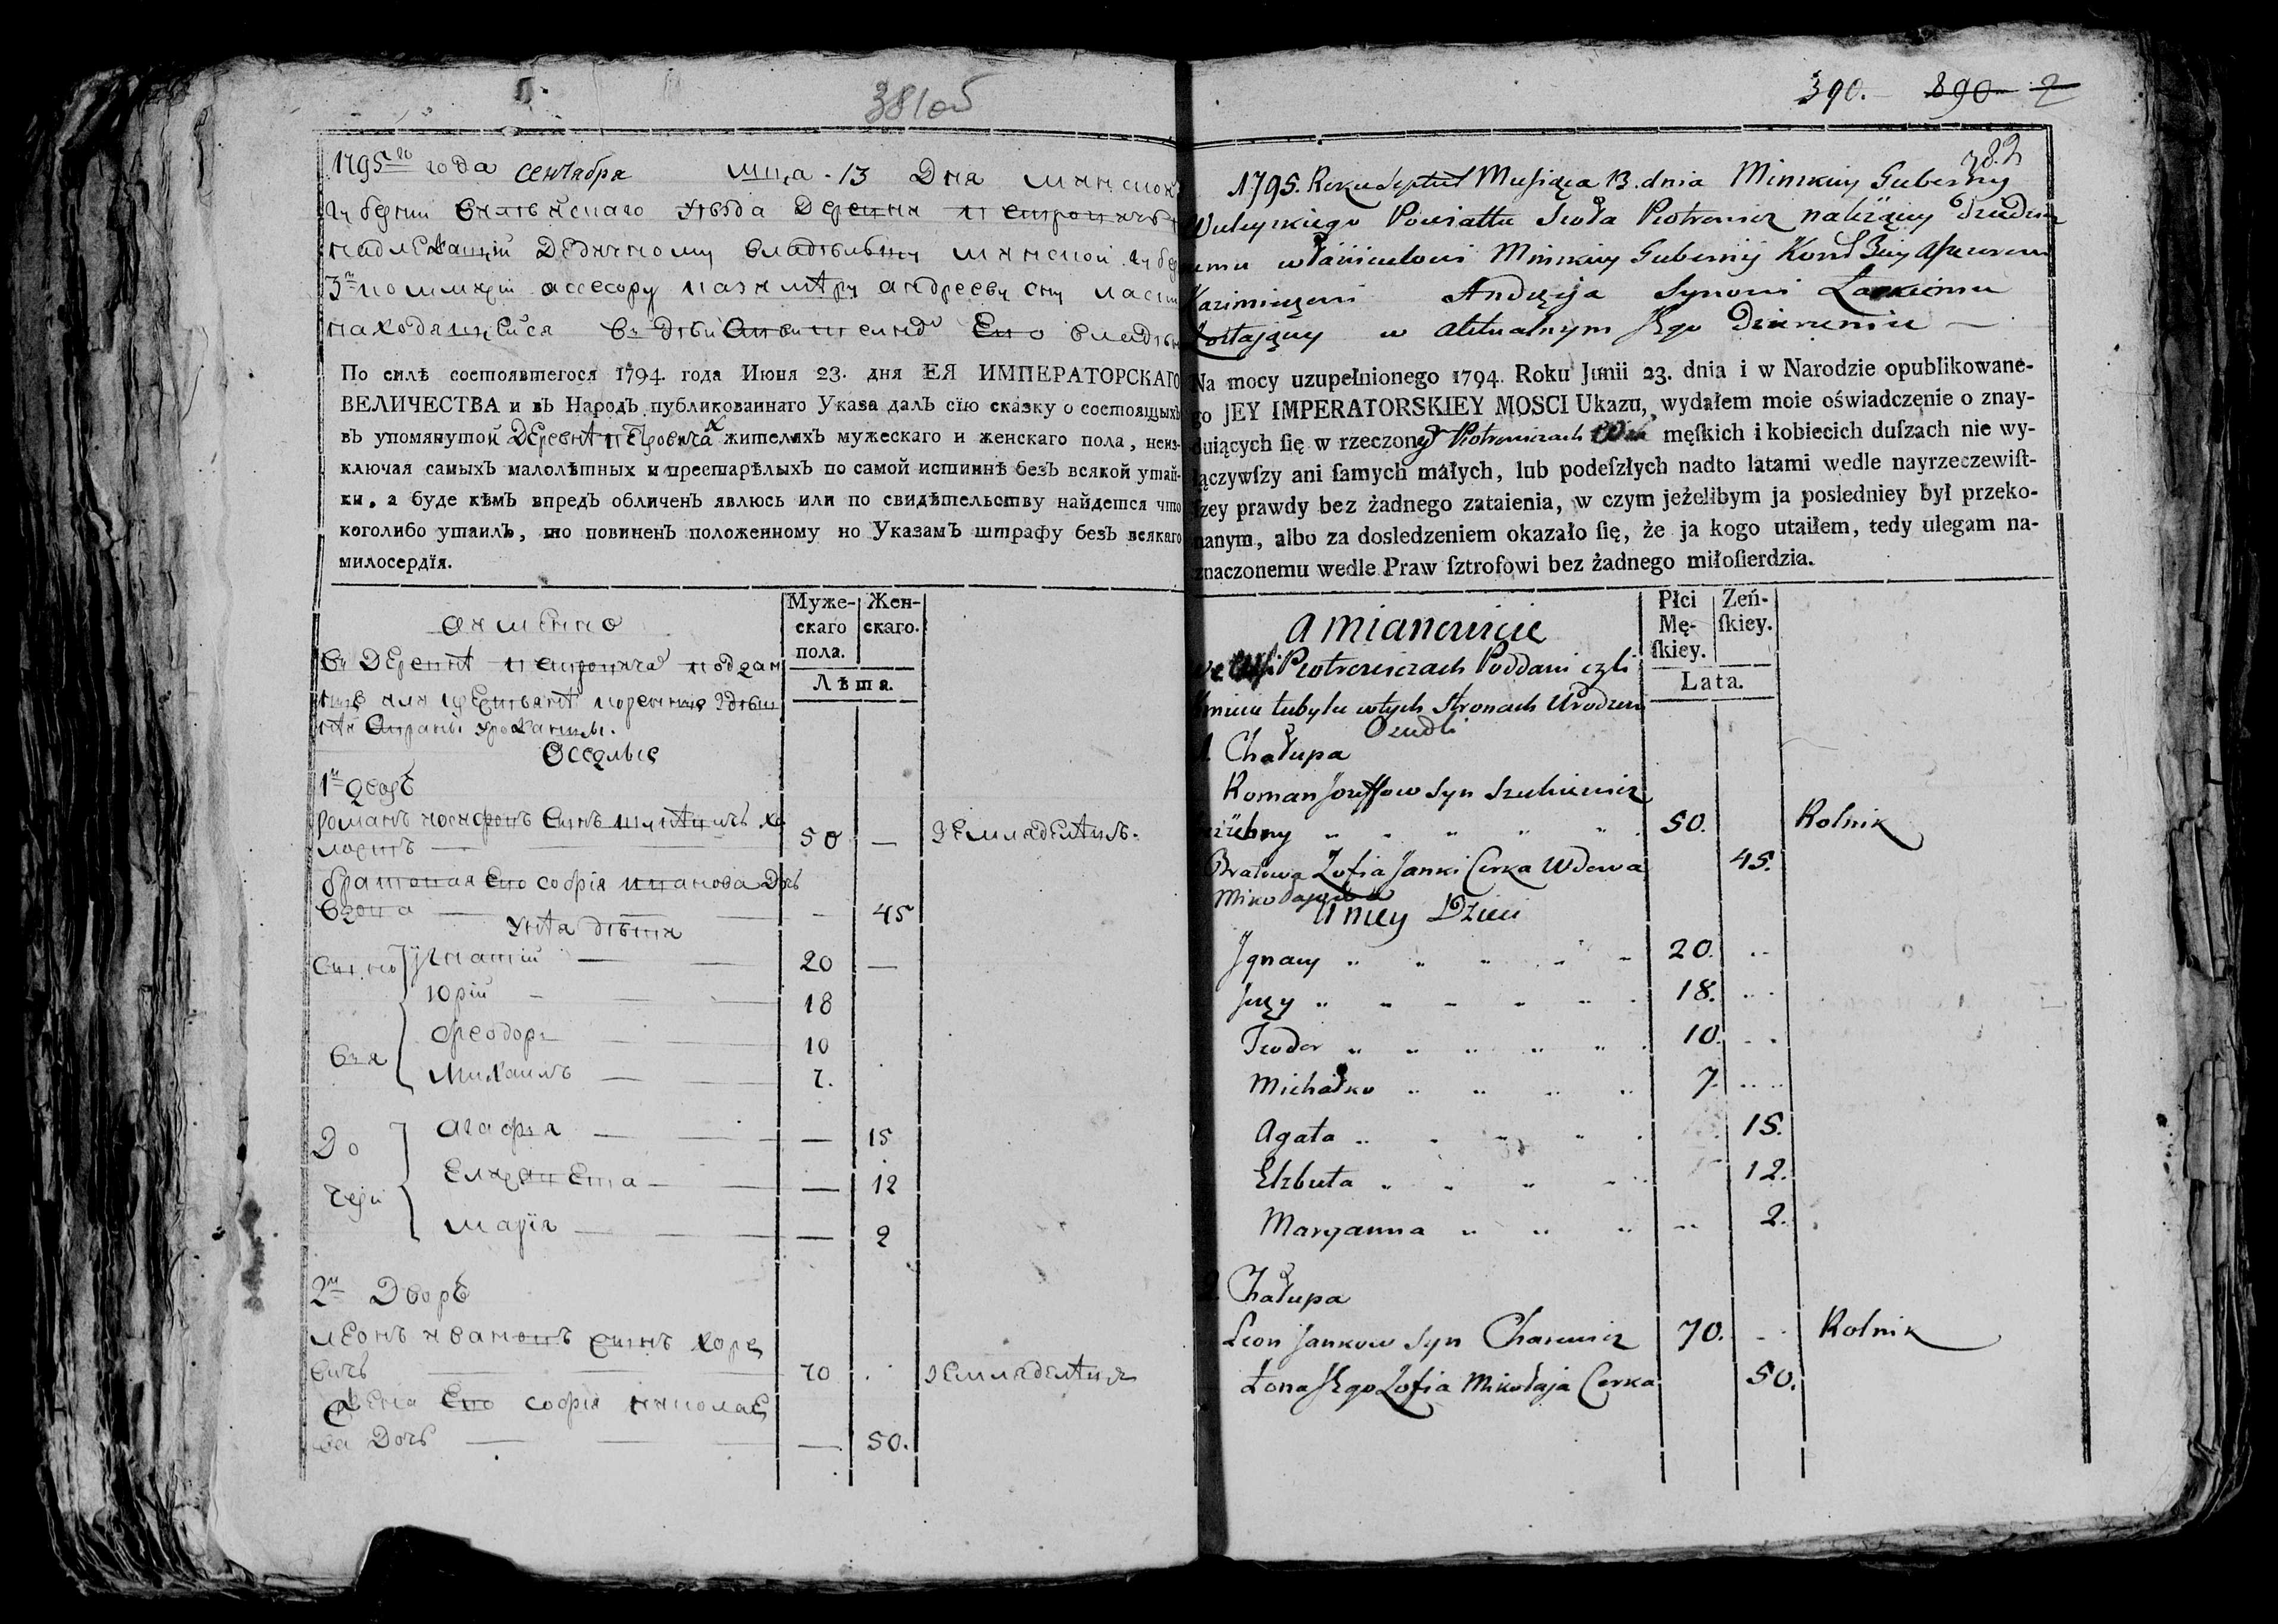 381об
1795го года сентября мца 13 Дня минской
губернии Вилейскаго уезда Деревня Петровичъ
надлежащiй Дедичному владельцу минской губер
3емли ассесору казимеру андрееву сну ласки
находящейся въ действительномъ Его владен
По силѣ состоявшегося 1794. года Июня 23. дня ЕЯ ИМПЕРАТОРСКАГО
ВЕЛИЧЕСТВА и въ Народъ публикованнаго Указа далъ сїю сказку о состоящихъ
въ упомянутой Деревнѣ Петровичах жителяхъ мужескаго и женскаго пола, неиз-
ключая самыхъ малолѣтныхъ и престарѣлыхъ по самой истиннѣ безъ всякой утай-
ки, а буде кѣмъ впредъ обличенъ явлюсь или по свидѣтельству найдется что
коголибо утаилъ, то повиненъ положенному по Указамъ штрафу безъ всякаго
милосердїя.
а именно
Муже-скаго пола.
Жен-скаго.
Лѣта.
въ Деревнѣ Петровичахъ поддан
стороны урожанцы.
Оседлые
1й дворъ
романъ иосифовъ сынъ
50 — Земледѣлъ.
братовая Его софiя иванова Дочь
вдова — 45
у нея дети
Сыно Игнатiй 20 —
Юрiй 18
вья Феодоръ 10
Михаилъ 7.
До Агафiя — 15
Елизавета — 12
чери марiя — 2
2й Дворъ
леонъ ивановъ сынъ хоре
вичъ 70 земледѣлъ
Жена Его софiя николае
ва Дочь — 50.
390. 890 2
382
1795. Roku Septeb Miesiąca 13. dnia Minskiey Guberny
Wileyskiego Powiattu Sioła Piotrowicz należący Dziedzicz
nemu właścicielowi Minskiey Gubernij Assessorowi
Kazimierzowi Andrzeja Synowi Łaskiemu
Zostający w aktualnym Jego Dzierzeniu —
Na mocy uzupełnionego 1794. Roku Junii 23. dnia i w Narodzie opublikowane-
go JEY IMPERATORSKIEY MOSCI Ukazu, wydałem moie oświadczenie o znay-
duiących ſię w rzeczoney Piotrowiczach męſkich i kobiecich duſzach nie wy-
łączywſzy ani ſamych małych, lub podeſzłych nadto latami wedle nayrzeczewiſt-
ſzey prawdy bez żadnego zataienia, w czym jeżelibym ja posledniey był przeko-
nanym, albo za dosledzeniem okazało ſię, że ja kogo utaiłem, tedy ulegam na-
znaczonemu wedle Praw ſztrofowi bez żadnego miłoſierdzia.
a mianowicie
Płci Mę-ſkiey.
Zeń-ſkiey.
Lata.
we Wsi Piotrowiczach Poddani czyli
Kmiecie tubylce wtych Stronach Urodzeni
Osiedli
1. Chałupa
Roman Jozeffow Syn
50. Rolnik
Bratowa Zofia Janki Corka Wdowa 45.
Mikołajowa
U niey Dzieci
Jgnacy 20.
Jerzy 18.
Teodor 10.
Michałko 7.
Agata 15.
Elzbieta 12.
Maryanna 2.
2. Chałupa
Leon Jankow Syn Charewicz 70. Rolnik
Żona Jego Zofia Mikołaja Corka 50.